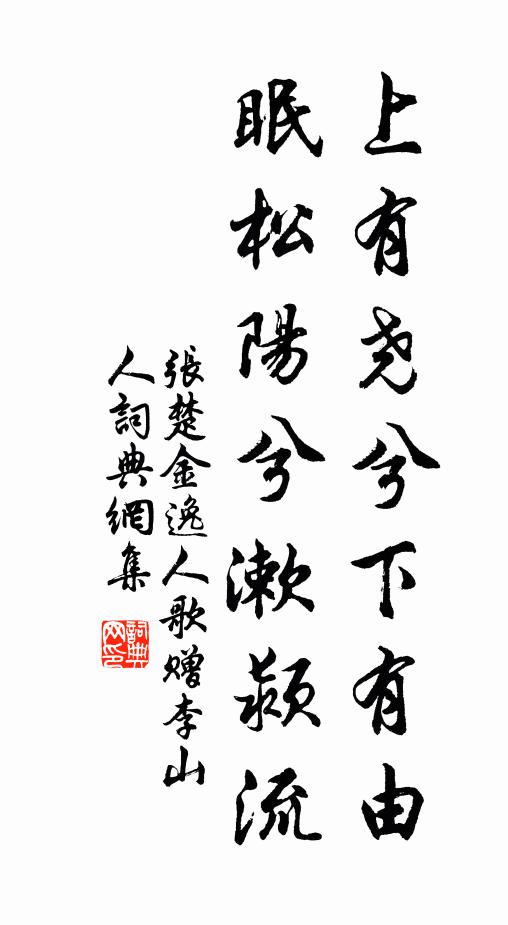 上有尧兮下有由
眠松陽兮漱颍流
張楚金逸人歌赠李山
人詞典網集
詞典
网印